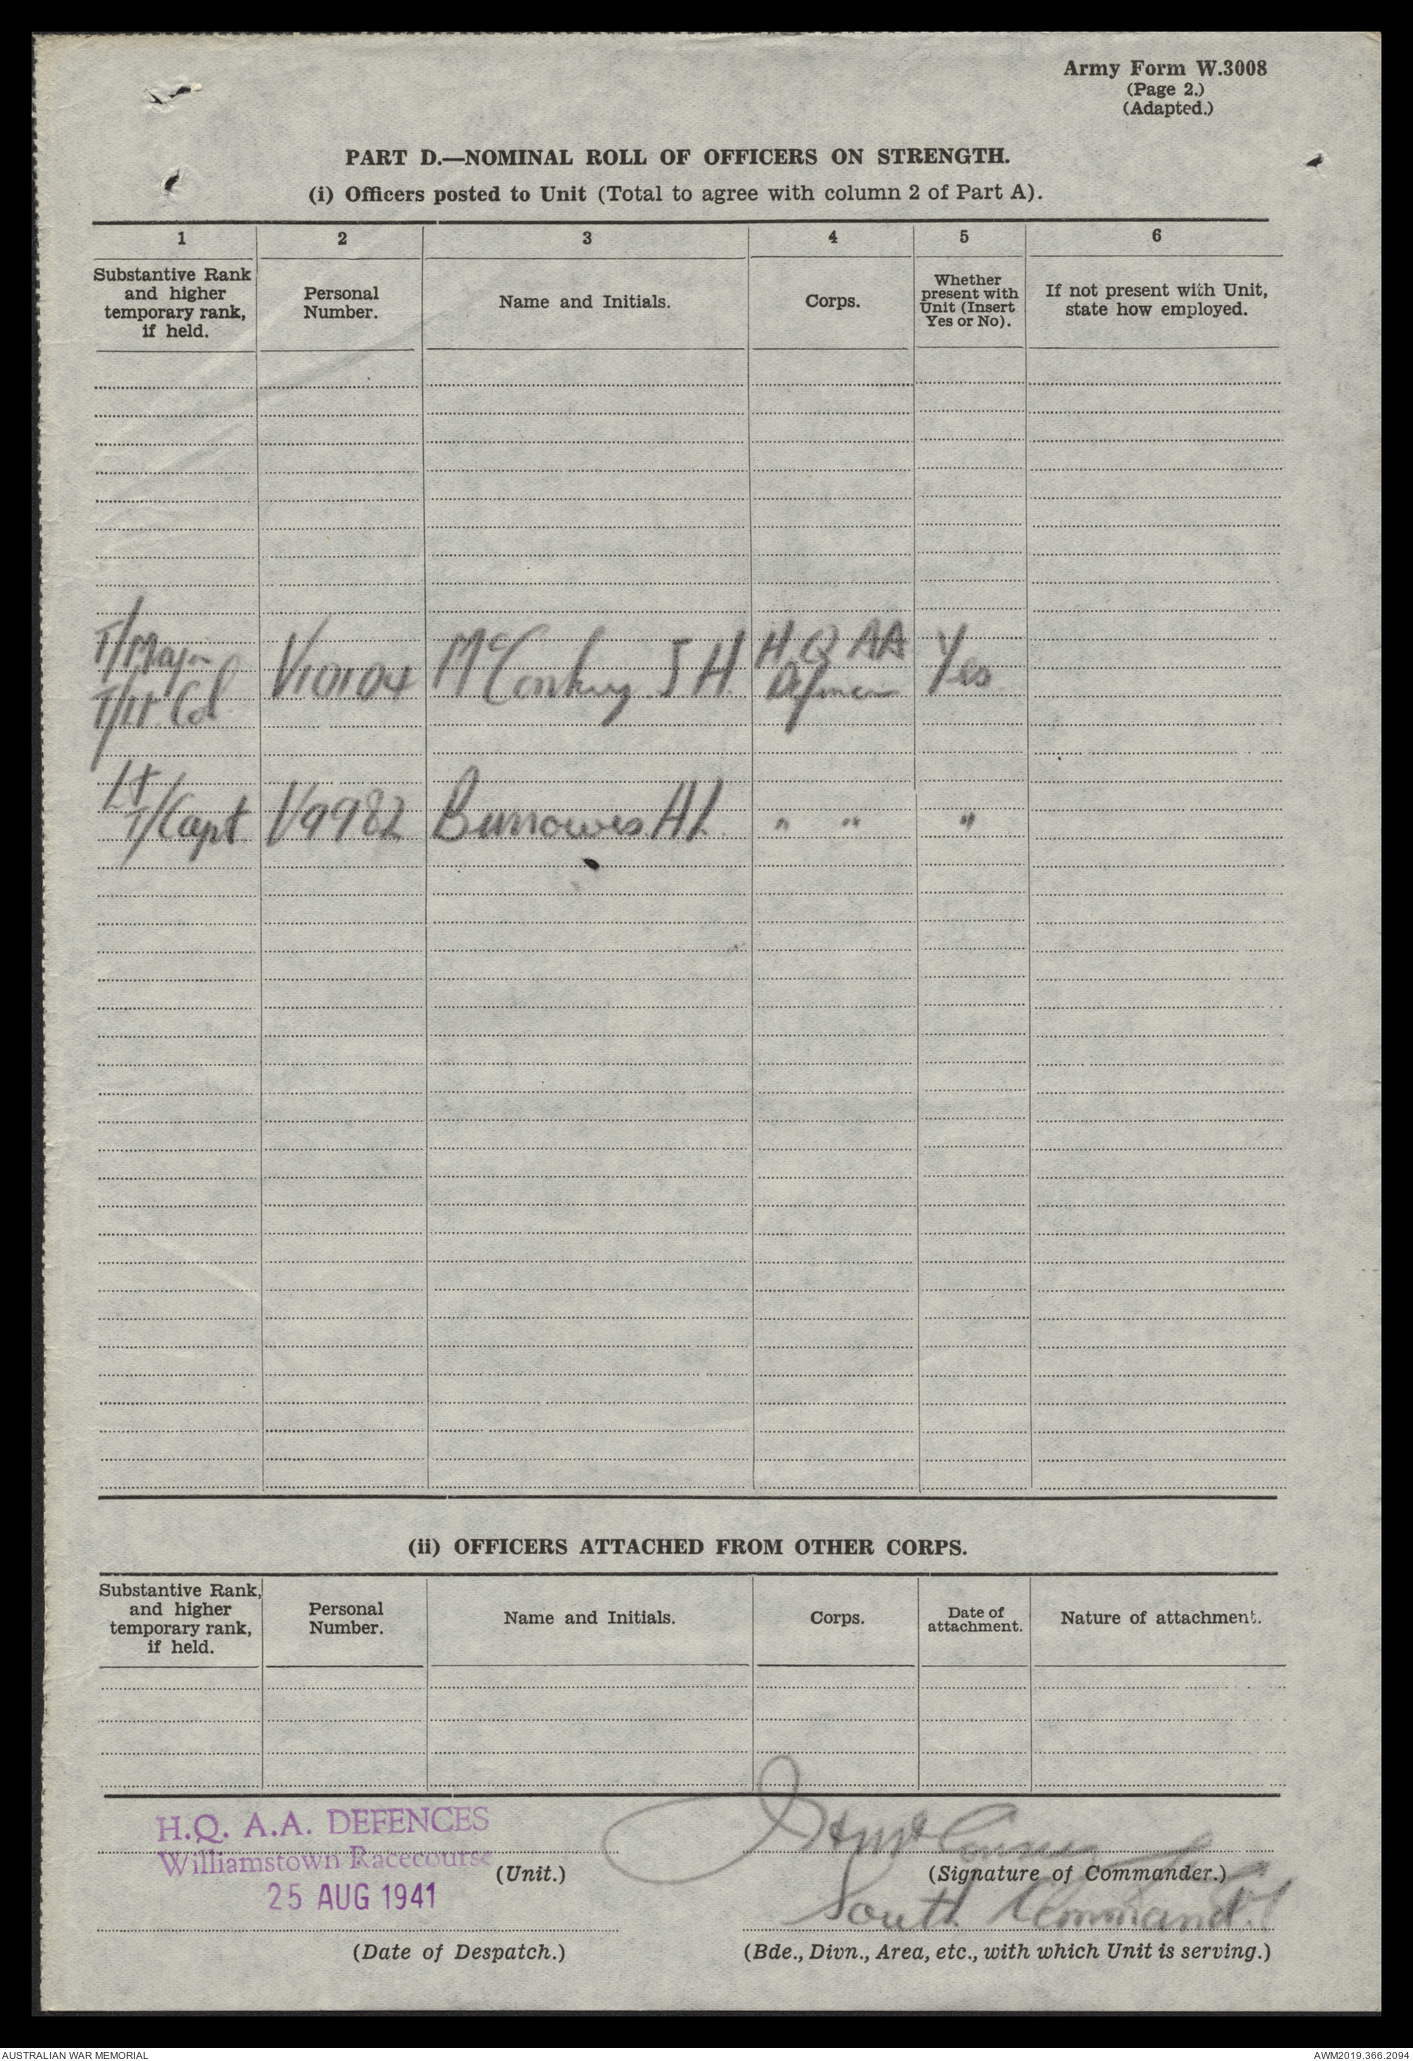 Army Form W.3008
(Page 2.)
(Adapted.)
PART D.—NOMINAL ROLL OF OFFICERS ON STRENGTH.
(i) Officers posted to Unit (Total to agree with column 2 of Part A).
1 2 3 4 5 6
Substantive Rank and higher temporary rank, if held.
Personal Number.
Name and Initials.
Corps.
Whether present with Unit (Insert Yes or No).
If not present with Unit, state how employed.
T/Major
T/Lt Col V10104 McConkey J H H.Q AA Yes
Lt
T/Capt V9982 Burrowes A L " " "
(ii) OFFICERS ATTACHED FROM OTHER CORPS.
Substantive Rank, and higher temporary rank, if held.
Personal Number.
Name and Initials.
Corps.
Date of attachment.
Nature of attachment.
H.Q. A.A. DEFENCES
Williamstown Racecourse
(Unit.)
(Signature of Commander.)
25 AUG 1941
South Command.
(Date of Despatch.)
(Bde., Divn., Area, etc., with which Unit is serving.)
AUSTRALIAN WAR MEMORIAL
AWM2019.366.2094